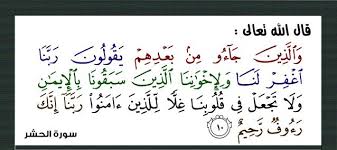 قال الله تعالى :
وَٱلَّذِينَ جَآءُو مِنۢ بَعۡدِهِمۡ يَقُولُونَ رَبَّنَا
ٱغۡفِرۡ لَنَا وَلِإِخۡوَٰنِنَا ٱلَّذِينَ سَبَقُونَا بِٱلۡإِيمَٰنِ
وَلَا تَجۡعَلۡ فِي قُلُوبِنَا غِلّٗا لِّلَّذِينَ ءَامَنُواْ رَبَّنَآ إِنَّكَ
رَءُوفٞ رَّحِيمٌ ١٠
سورة الحشر